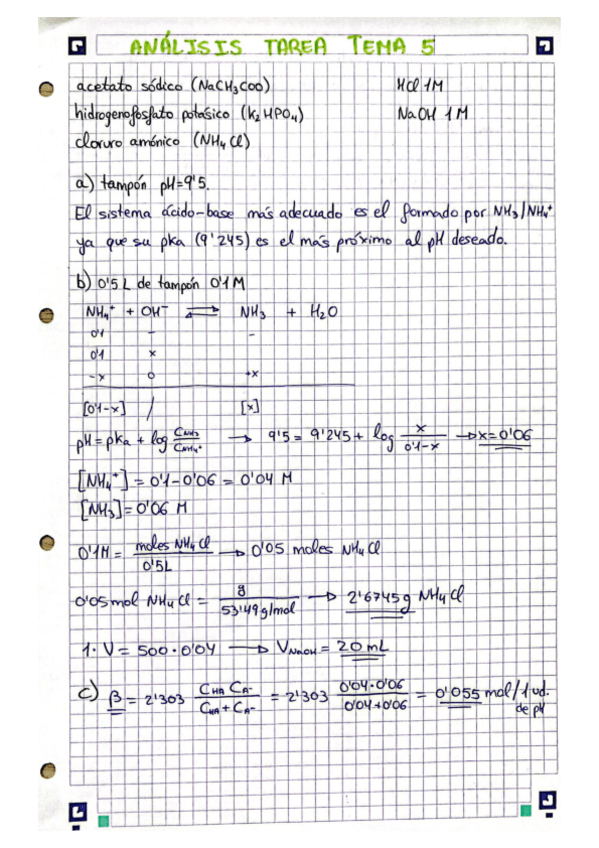 ANÁLISIS TAREA TEMA 5
acetato sódico (NaCH₃COO) HCl 1M
hidrogenofosfato potásico (K₂HPO₄) NaOH 1M
cloruro amónico (NH₄Cl)
a) tampón pH=9'5.
El sistema ácido-base más adecuado es el formado por NH₃/NH₄⁺
ya que su pKa (9'245) es el más próximo al pH deseado.
b) 0'5L de tampón 0'1M
NH₄⁺ + OH⁻ ⇌ NH₃ + H₂O
0'1 − −
0'1 x
−x 0 +x
[0'1-x] / [x]
pH = pKa + log C_NH₃/C_NH₄⁺ → 9'5 = 9'245 + log x/0'1-x → x=0'06
[NH₄⁺] = 0'1-0'06 = 0'04 M
[NH₃] = 0'06 M
0'1M = moles NH₄Cl/0'5L → 0'05 moles NH₄Cl
0'05mol NH₄Cl = g/53'49g/mol → 2'6745g NH₄Cl
1·V = 500·0'04 → V_NaOH = 20mL
c) β = 2'303 C_HA C_A⁻/C_HA + C_A⁻ = 2'303 0'04·0'06/0'04+0'06 = 0'055 mol/1ud.
de pH